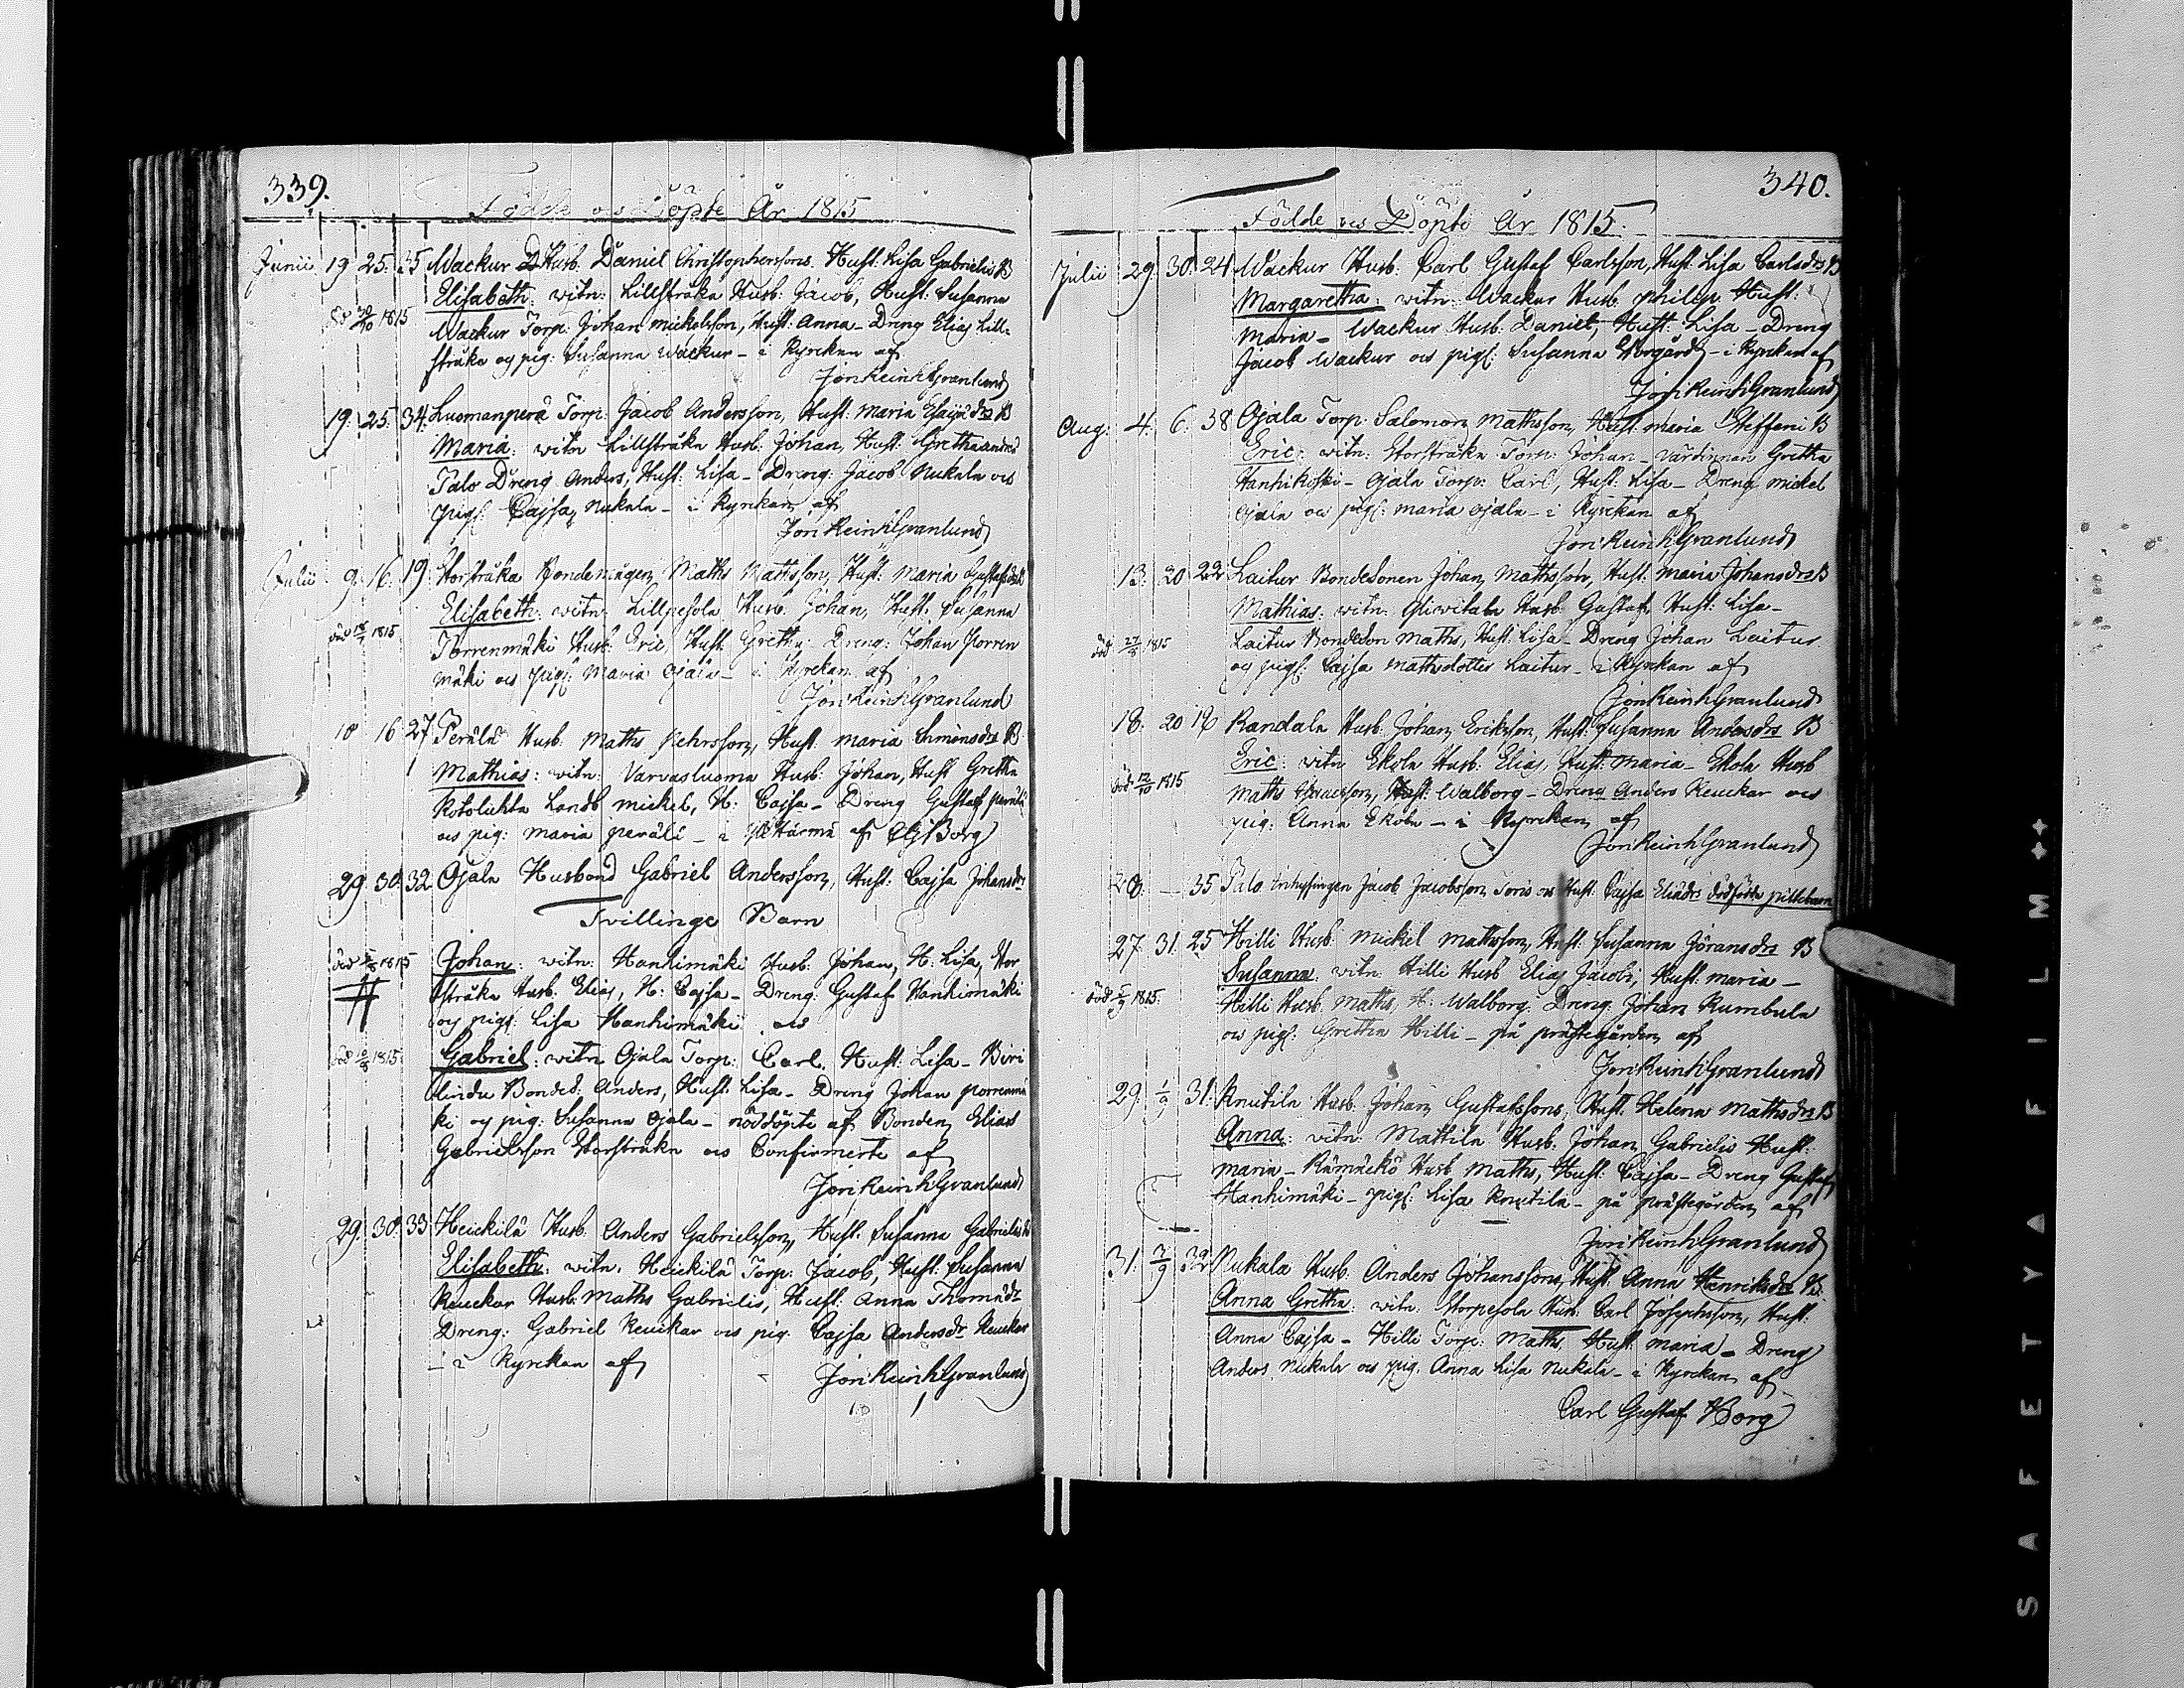 339.
Födde och Döpte År 1815
Junii 19 25. 35 Wackur Husb: Daniel Christophersons Hust: Lisa Gabrielis B
Elisabeth: witn: Lillstråka Husb: Jacob, Hust: Susanna
död 30/10 1815 Wackur Torp: Johan Mickelsson, Hust: Anna - Dreng Elias Lill-
stråka och pig: Susanna Wackur - i Kyrckan af
Jon: Reinh: Granlund
19. 25. 34. Luomanperä Torp: Jacob Andersson, Hust: Maria Esaiædr B
Maria: witn Lillstråka Husb: Johan, Hust: Gretha
Palo Dreng Anders, Hust: Lisa - Dreng: Jacob Nukala och
pig: Cajsa Nukala - i Kyrckan af
Jon: Reinh: Granlund
Julii 9. 16. 19. Storstråka Bondemågen Maths Mathsson, Hust: Maria Gustafsdr
Elisabeth: witn: Lillpesola Husb: Johan, Hust: Susanna
död 18/7 1815 Porrenmäki Husb: Eric, Hust: Gretha: Dreng: Johan Porren
mäki och pig: Maria Ojala - i Kyrckan af
Jon: Reinh: Granlund
10 16 27 Perälä Husb: Maths Pehrsson, Hust: Maria Simonsdr B
Mathias: witn: Varvasluoma Husb: Johan, Hust Gretha
Kotoluhta Landb Mickel, H: Cajsa - Dreng Gustaf perälä
och pig: Maria perälä - i af CG Borg
29. 30. 32 Ojala Husbond Gabriel Andersson, Hust: Cajsa Johansdr
Tvillinge Barn
död 1815 Johan: witn: Hankimäki Husb: Johan, H: Lisa, Stor
stråka Husb: Elias, H: Cajsa - Dreng: Gustaf Hankimäki
och pig: Lisa Hankimäki och
död 1815 Gabriel: witn Ojala Torp: Carl. Hust: Lisa -
Bonded: Anders, Hust: Lisa - Dreng Johan porrenmä
ki och pig: Susanna Ojala - nöddöpte af Bonden Elias
Gabrielsson Storstråka och Confirmerte af
Jon: Reinh: Granlund
29. 30. 33 Heickilä Husb: Anders Gabrielsson, Hust: Susanna Gabrielis
Elisabeth: witn: Heickilä Torp: Jacob, Hust: Susanna
Keuckar Husb: Maths Gabrielis, Hust: Anna Thomædr
Dreng: Gabriel Keuckar och pig: Cajsa Andersdr Keuckar
- i Kyrckan af
Jon: Reinh: Granlund
340.
Födde och Döpte År 1815.
Julii 29. 30. 24 Wackur Husb: Carl Gustaf Carlsson, Hust: Lisa Carlsdr B
Margaretha: witn: Wackur Husb: philip Hust:
Maria - Wackur Husb: Daniel, Hust: Lisa - Dreng
Jacob Wackur och pig: Susanna Norgård - i Kyrckan af
Jon: Reinh: Granlund
Aug: 4. 6. 38 Ojala Torp: Salomon Mathsson, Hust: Maria Steffani B
Eric: witn: Storstråka Torp: Johan - Värdinnan Gretha
Hanhikoski - Ojala Torp: Carl, Hust: Lisa - Dreng Mickel
Ojala och pig: Maria Ojala - i Kyrckan af
Jon: Reinh: Granlund
13. 20 22 Laitur Bondesonen Johan Mathsson, Hust: Maria Johansdr B
Mathias: witn: Husb: Gustaf, Hust: Lisa -
död 27/8 1815 Laitur Bondeson Maths, Hust: Lisa - Dreng Johan Laitur
och pig: Cajsa Mathsdotter Laitur - i Kyrckan af
Jon: Reinh: Granlund
18. 20 Randala Husb: Johan Eriksson, Hust: Susanna Andersdr B
Eric: witn Ekola Husb: Elias, Hust: Maria - Ekola Husb
död 12/10 1815 Maths, Hust: Walborg - Dreng Anders Keuckar och
pig: Anna Ekola - i Kyrckan af
Jon: Reinh: Granlund
28. - 35 Palo Inhysingen Jacob Jacobsson och Hust: Cajsa Eliædr dödfödda piltebarn
27. 31. 25 Hilli Husb: Mickel Mathsson, Hust: Susanna Jöransdr B
Susanna: witn: Hilli Husb Elias Jacobi, Hust: Maria -
död 5/9 1815. Hilli Husb: Maths, H: Walborg: Dreng: Johan Kumbula
och pig: Gretha Hilli - på prästegården af
Jon: Reinh: Granlund
29 1/9 31. Knutila Husb: Johan Gustafssons, Hust: Helena Mathsdr B
Anna: witn: Mattila Husb: Johan Gabrielis Hust:
Maria - Husb Maths, Hust: Cajsa - Dreng Gustaf
Hankimäki - pig: Lisa Knutila - på prästegården af
Jon: Reinh: Granlund
31. 3/9 32 Nukala Husb: Anders Johanssons, Hust: Anna Henriksdr B
Anna Gretha: witn: Storpesola Husb: Carl Josephsson, Hust:
Anna Cajsa - Hilli Torp: Maths, Hust: Maria - Dreng
Anders Nukala och pig: Anna Lisa Nukala - i Kyrckan af
Carl Gustaf Borg
SAFETY FILM